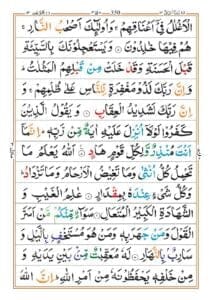 الْاَغْلٰلُ فِیْۤ اَعْنَاقِهِمْ ۚ وَاُولٰٓئِكَ اَصْحٰبُ النَّارِ ۚ
هُمْ فِیْهَا خٰلِدُوْنَ ۝ وَیَسْتَعْجِلُوْنَكَ بِالسَّیِّئَةِ
قَبْلَ الْحَسَنَةِ وَقَدْ خَلَتْ مِنْ قَبْلِهِمُ الْمَثُلٰتُ ؕ
وَاِنَّ رَبَّكَ لَذُوْ مَغْفِرَةٍ لِّلنَّاسِ عَلٰی ظُلْمِهِمْ ۚ
وَاِنَّ رَبَّكَ لَشَدِیْدُ الْعِقَابِ ۝ وَیَقُوْلُ الَّذِیْنَ
كَفَرُوْا لَوْلَاۤ اُنْزِلَ عَلَیْهِ اٰیَةٌ مِّنْ رَّبِّهٖ ؕ اِنَّمَاۤ
اَنْتَ مُنْذِرٌ وَّلِكُلِّ قَوْمٍ هَادٍ ۝ اَللّٰهُ یَعْلَمُ مَا
تَحْمِلُ كُلُّ اُنْثٰی وَمَا تَغِیْضُ الْاَرْحَامُ وَمَا تَزْدَادُ ؕ
وَكُلُّ شَیْءٍ عِنْدَهٗ بِمِقْدَارٍ ۝ عٰلِمُ الْغَیْبِ وَ
الشَّهَادَةِ الْكَبِیْرُ الْمُتَعَالِ ۝ سَوَآءٌ مِّنْكُمْ مَّنْ اَسَرَّ
الْقَوْلَ وَمَنْ جَهَرَ بِهٖ وَمَنْ هُوَ مُسْتَخْفٍۭ بِالَّیْلِ وَ
سَارِبٌۢ بِالنَّهَارِ ۝ لَهٗ مُعَقِّبٰتٌ مِّنْۢ بَیْنِ یَدَیْهِ وَ
مِنْ خَلْفِهٖ یَحْفَظُوْنَهٗ مِنْ اَمْرِ اللّٰهِ ؕ اِنَّ اللّٰهَ